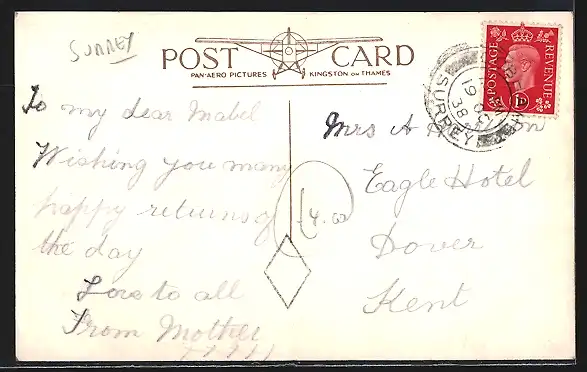 SURREY
POST CARD
PAN-AERO PICTURES KINGSTON ON THAMES
POSTAGE REVENUE
1D
SURREY
19
38
To my dear Mabel
Wishing you many
happy returns of
the day
Love to all
From Mother
Mrs A
Eagle Hotel
Dover
Kent
£4.00